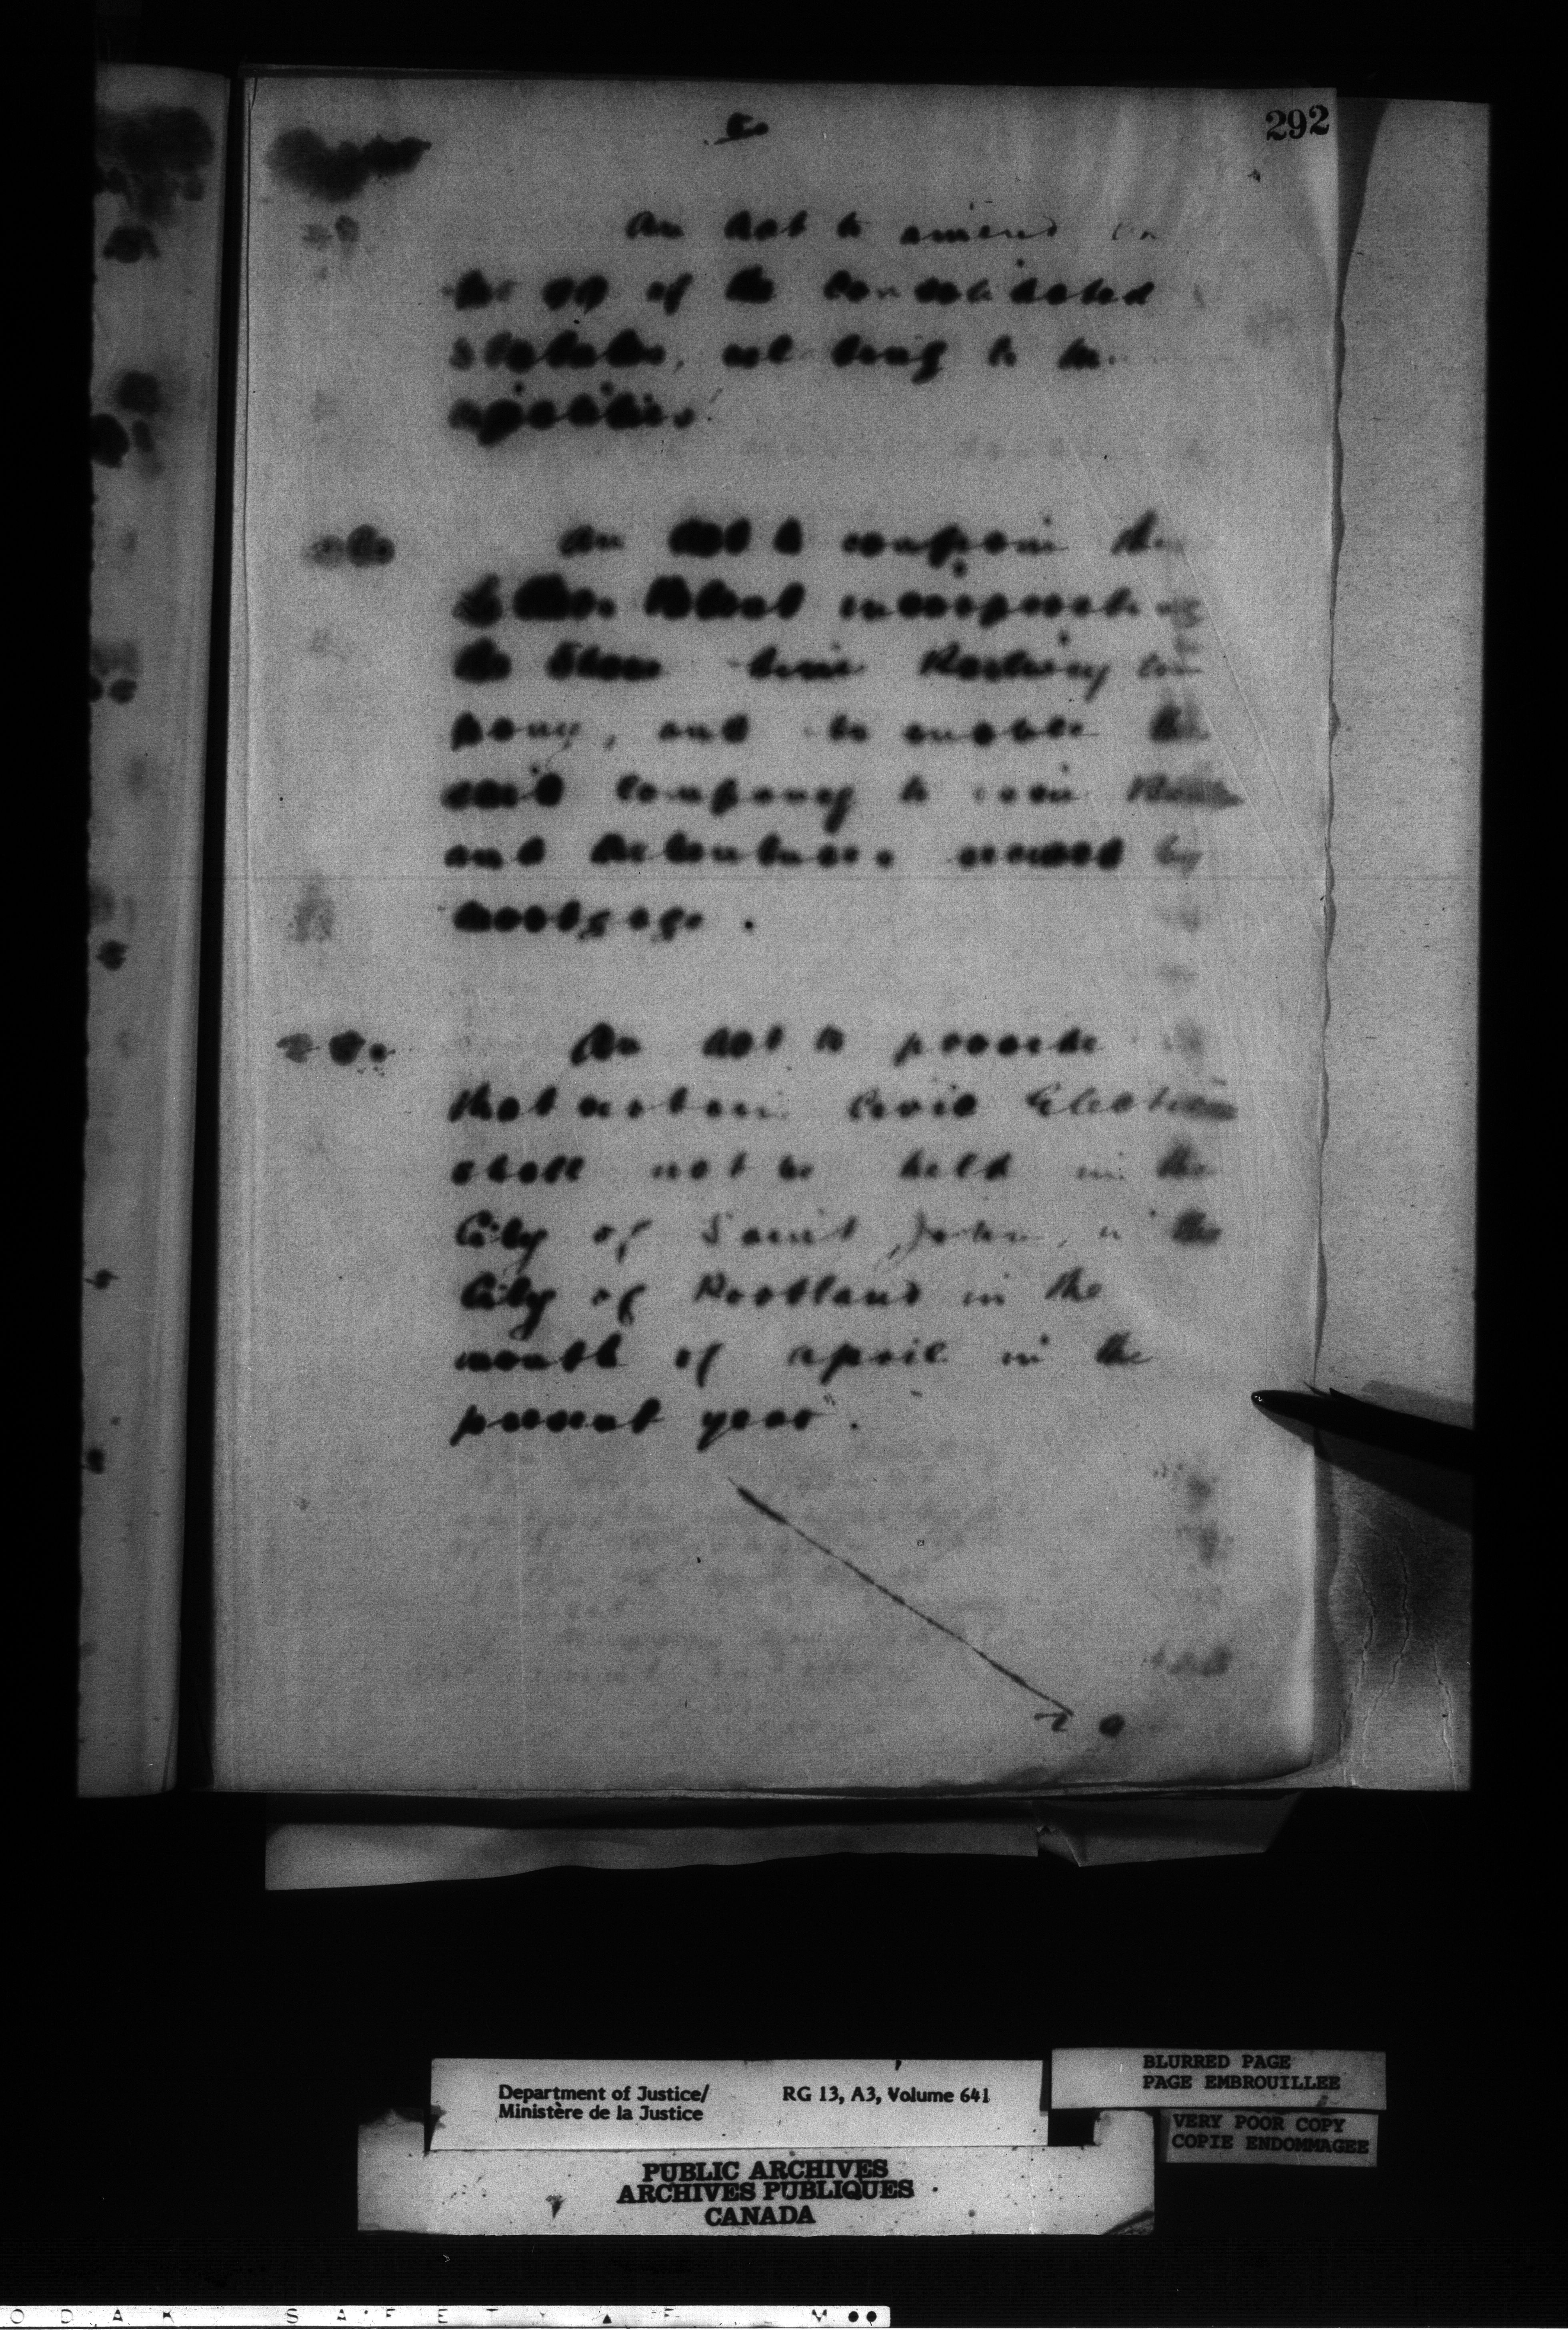 292
An Act to amend
of the Consolidated
Statutes, relating to Mu
nicipalities
An Act to confirm the
Letters Patent incorporating
the Shore Line Railway Com
pany, and to enable the
said Company to issue Bonds
and debentures secured by
mortgage .
An Act to provide
that certain Civic Elections
shall not be held in the
City of Saint John, or the
City of Portland in the
month of April in the
present year".
Department of Justice/
Ministère de la Justice
RG 13, A3, Volume 641
BLURRED PAGE
PAGE EMBROUILLEE
VERY POOR COPY
COPIE ENDOMMAGEE
PUBLIC ARCHIVES
ARCHIVES PUBLIQUES
CANADA
O D A K S A F E T Y F L M